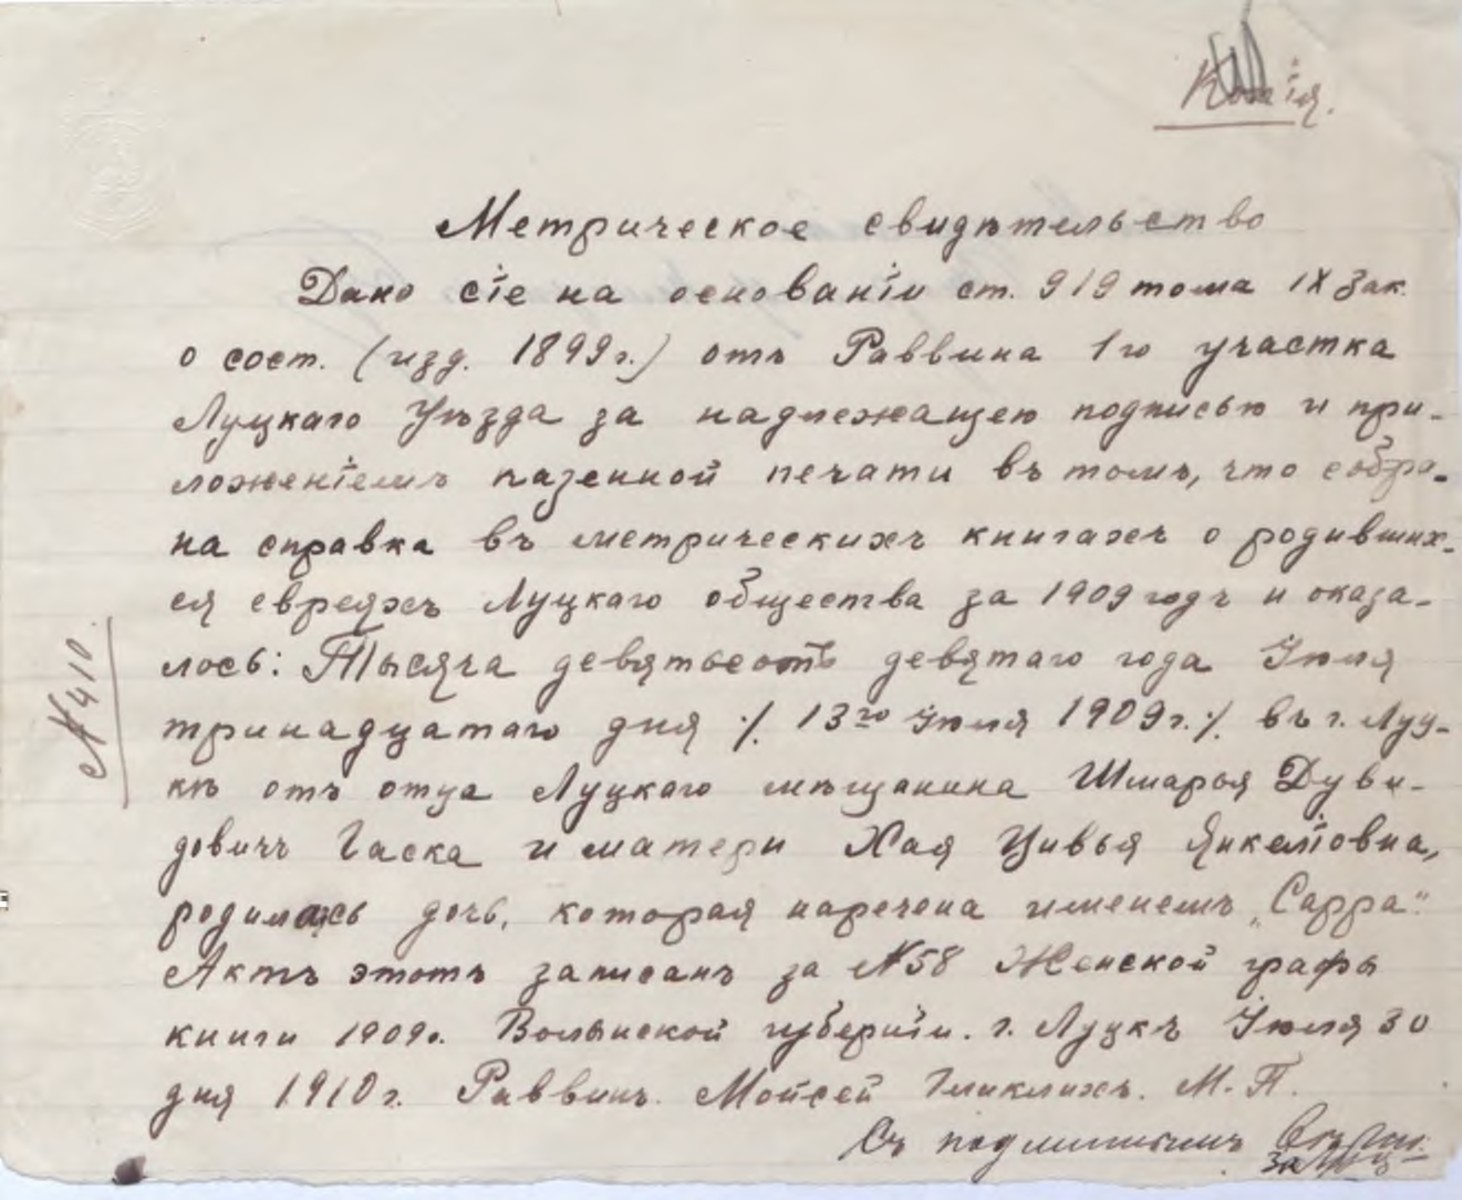 Копія.
Метрическое свидѣтельство
Дано сіе на основаніи ст. 919 тома IX Зак.
о сост. (изд. 1899 г.) отъ Раввина 1го участка
Луцкаго Уѣзда за надлежащею подписью и при-
ложеніемъ казенной печати въ томъ, что собра-
на справка въ метрическихъ книгахъ о родивших-
ся евреяхъ Луцкаго общества за 1909 годъ и оказа-
лось: Тысяча девятьсотъ девятаго года Іюля
тринадцатаго дня ./. 13го Іюля 1909 г. ./. въ г. Луц-
кѣ отъ отца Луцкаго мѣщанина Шмарья Дуви-
довичъ Гаска и матери Хая Цивья Янкелiовна,
родилась дочь, которая наречена именемъ „Сарра".
Актъ этотъ записанъ за №58 Женской графы
книги 1909 г. Волынской губерніи. г. Луцкъ Іюля 30
дня 1910 г. Раввинъ Мойсей Гликлихъ. М. П.
Съ подлиннымъ
№ 410.